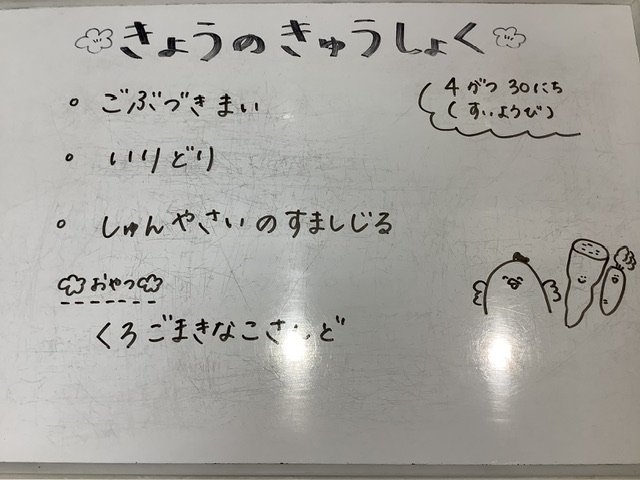 きょうのきゅうしょく
4がつ30にち
(すいようび)
・ごぶづきまい
・いりどり
・しゅんやさいのすましじる
おやつ
くろごまきなこさんど